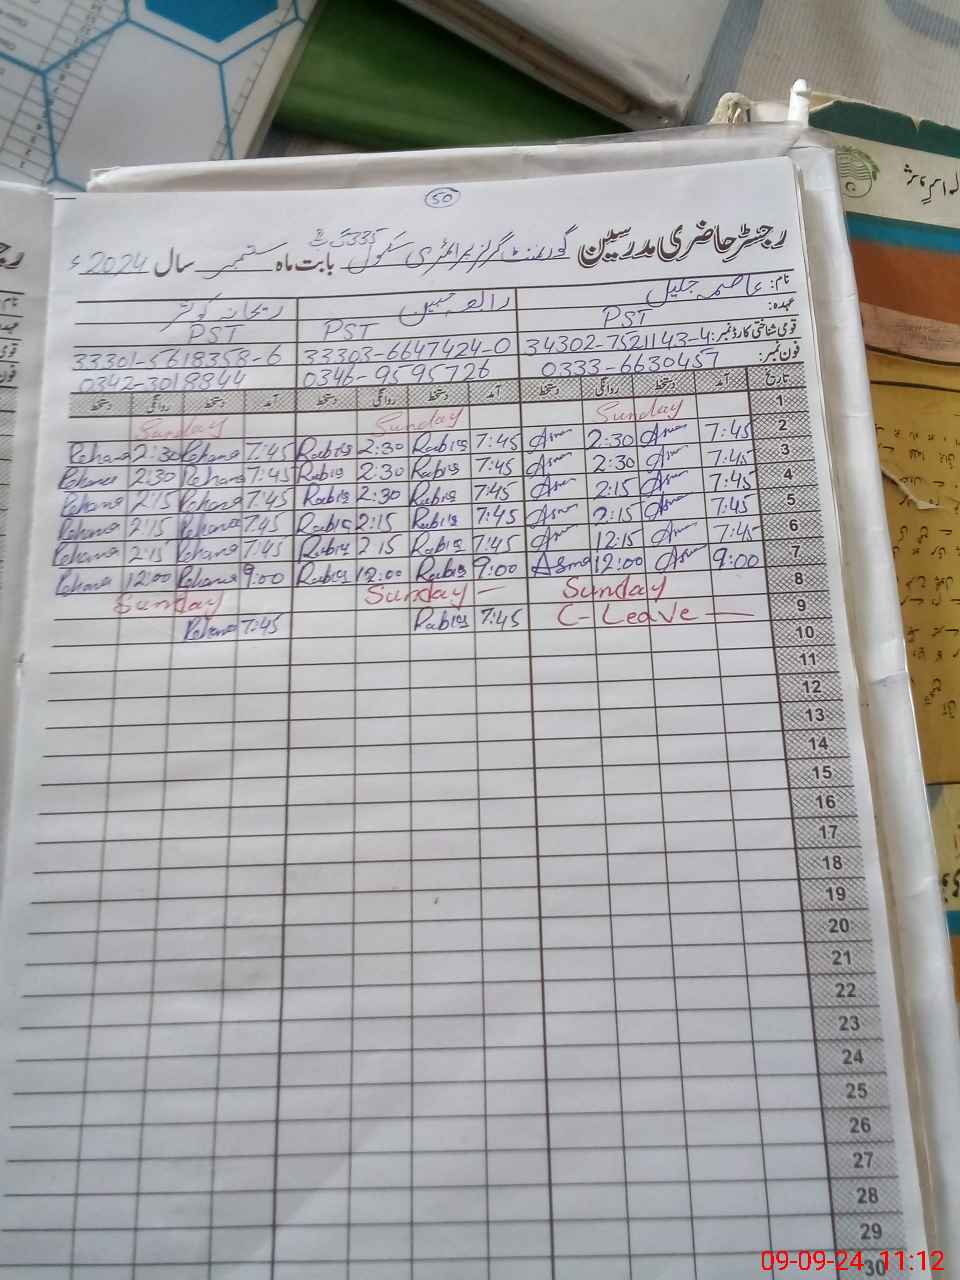 50
رجسٹر حاضری مدرسین گورنمنٹ گرلز پرائمری سکول 335 گ ب بابت ماہ ستمبر سال 2024ء
نام: عاصمہ جلیل رابعہ حسین ریحانہ کوثر
عہدہ: PST PST PST
قومی شناختی کارڈ نمبر: 34302-7521143-4 33303-6647424-0 33301-5618358-6
فون نمبر: 0333-6630457 0346-9595726 0342-3018844
تاریخ آمد دستخط روانگی دستخط آمد دستخط روانگی دستخط آمد دستخط روانگی دستخط
1 Sunday Sunday Sunday
2 7:45 Asma 2:30 Asma 7:45 Rabia 2:30 Rabia 7:45 Rehana 2:30 Rehana
3 7:45 Asma 2:30 Asma 7:45 Rabia 2:30 Rabia 7:45 Rehana 2:30 Rehana
4 7:45 Asma 2:15 Asma 7:45 Rabia 2:30 Rabia 7:45 Rehana 2:15 Rehana
5 7:45 Asma 2:15 Asma 7:45 Rabia 2:15 Rabia 7:45 Rehana 2:15 Rehana
6 7:45 Asma 12:15 Asma 7:45 Rabia 2 15 Rabia 7:45 Rehana 2:15 Rehana
7 9:00 Asma 12:00 Asma 9:00 Rabia 12:00 Rabia 9:00 Rehana 12:00 Rehana
8 Sunday Sunday Sunday
9 C-Leave 7:45 Rabia 7:45 Rehana
10
11
12
13
14
15
16
17
18
19
20
21
22
23
24
25
26
27
28
29
30
09-09-24 11:12